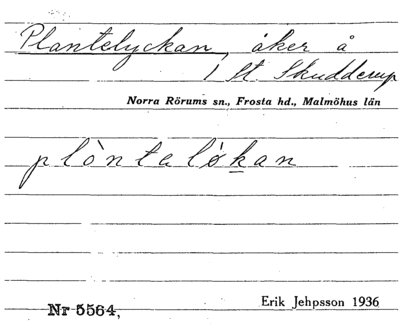 Plantelyckan, åker å
1 st. Skudderup
Norra Rörums sn., Frosta hd., Malmöhus län
plòntaløkan
Nr 5564,
Erik Jehpsson 1936